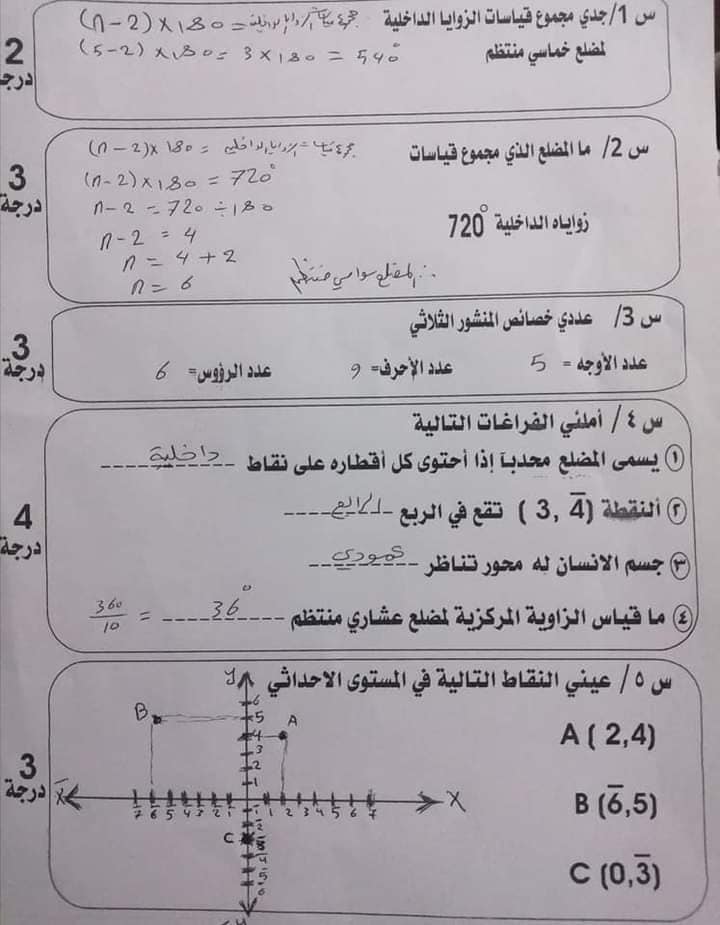 س 1/ جدي مجموع قياسات الزوايا الداخلية مجموع قياسات الزوايا الداخلية = (n-2)×180
لمضلع خماسي منتظم (5-2)×180= 3×180 = 540°
2
درجة
س 2/ ما المضلع الذي مجموع قياسات مجموع قياسات الزوايا الداخلية = (n-2)×180
زواياه الداخلية 720°
(n-2)×180 = 720°
n-2 = 720 ÷ 180
n-2 = 4
n = 4+2
n = 6
∴ المضلع سداسي منتظم
3
درجة
س 3/ عددي خصائص المنشور الثلاثي
عدد الأوجه = 5 عدد الأحرف= 9 عدد الرؤوس= 6
3
درجة
س ٤/ أملئي الفراغات التالية
① يسمى المضلع محدبآ إذا أحتوى كل أقطاره على نقاط داخلية
② ألنقطة (3, 4̅) تقع في الربع الرابع
③ جسم الانسان له محور تناظر عمودي
④ ما قياس الزاوية المركزية لمضلع عشاري منتظم 36° = 360/10
4
درجة
س ٥/ عيني النقاط التالية في المستوى الاحداثي
A ( 2,4)
B (6̅,5)
C (0,3̅)
3
درجة
y
6
5
4
3
2
1
B
A
x̅ 7̅ 6̅ 5̅ 4̅ 3̅ 2̅ 1̅ 1 2 3 4 5 6 7 x
1̅
2̅
C 3̅
4̅
5̅
6̅